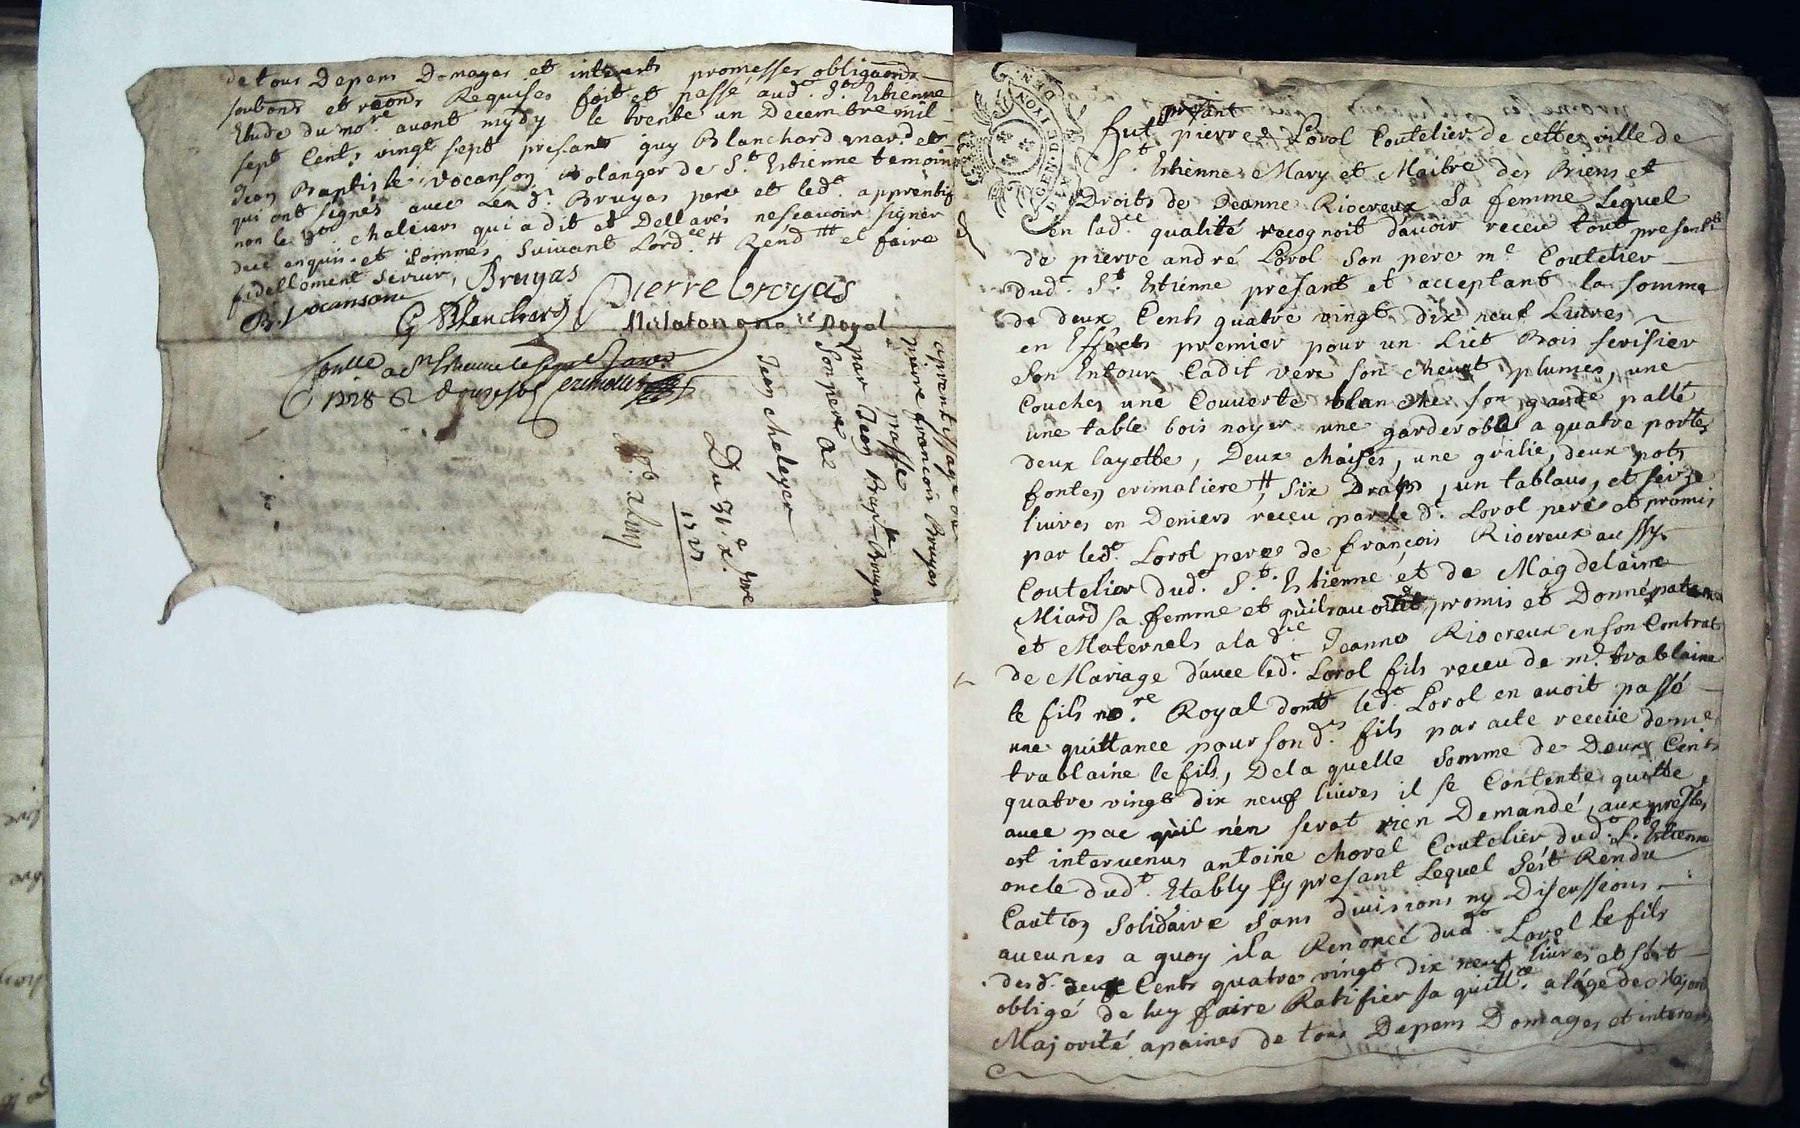 de tous Depens Domages et interests promesses obligaons
soubons et reons Requises fait et passé aud.t S.t Estienne
Etude du no.re avant mydy le trente un Decembre mil
sept Cents vingt sept presants guy Blanchard mar.d et
Jean Baptiste vocanson bolanger de S.t Estienne temoins
qui ont signés avec Les d. Bruyas pere et led.t apprentif
non led chaleiers qui a dit et Dellarés ne scavoir signer
deue enquis et sommés suivant L'ord.ce Rend et faire
fidellement servir, Bruyas
B. vocanson
G Blanchard Pierre broyas
Royal
1728
aprentissage de
pierre francois Bruyas
passé
par Jean Bap.te Bruyas
Son pere a
Jean cheleyer
Du 31.e x.bre
1727
presant
fut pierre Lorol Coutelier de cette ville de
S.t Estienne Mary et Maitre des Biens et
Droits de Jeanne Riocreux Sa femme Lequel
en lad.ce qualité recognoit davoir receu tout presentt
de pierre andré Lorol Son pere m.e Coutelier
dud.t S.t Estienne presant et acceptant la somme
de deux Cents quatre vingt dix neuf Livres
en Effects premier pour un Lict Bois serisier
Son Entour Cadit vere son chevet plumes, une
Couches une Couverte blanche son garde pallie
une table bois noyer une garderobe a quatre portes
deux layette, Deux chaises, une grilie, deux pots
fontes crimaliere, Six Draps, un tablaus, et seize
livres en Deniers receu par le d. Lorol pere et promis
par led.t Lorol peres de françois Riocreux aussy
Coutelier dud.t S.t Estienne et de Magdelaine
Miard sa femme et quil avoit promis et Donné
et Maternels a la d.te Jeanne Riocreux en son Contrat
de Mariage d'avec led.t Lorol fils receu de m.e trablaine
le fils no.re Royal dont led.t Lorol en avoit passé
une quittance pour son d. fils par acte receüe de me
trablaine le fils, De la quelle Somme de Deux Cents
quatre vingt dix neuf livres il se Contente quitte
avec pac quil n'en serat rien Demandé, aux presstes
est intervenus antoine chorel Coutelier dud.t S.t Estienne
oncle dud.t Etably Cy presant Lequel Sest Rendu
Caution Solidaire Sans divisions ny Discussions
aucunes a quoy il a Renoncé dud.t Lorol le fils
des d. deux Cents quatre vingt dix neuf livres et Sest
obligé de luy faire Ratifier sa quitt.ce a lâge de
Majorité apaines de tous Depens Domages et interests